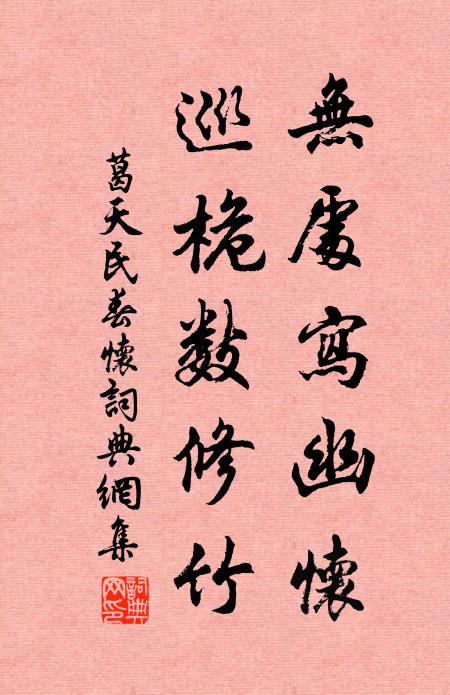 無處寫幽懷
巡桅數修竹
葛天民春懷詞典網集
詞典網印